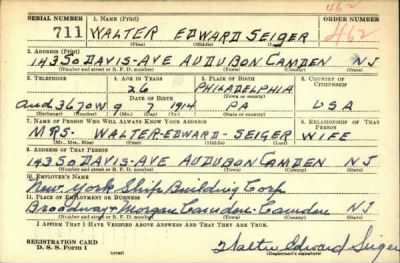 462
SERIAL NUMBER 1. NAME (Print) ORDER NUMBER
711 WALTER EDWARD SEIGER 462
(First) (Middle) (Last)
2. ADDRESS (Print)
143 SO DAVIS-AVE AUDUBON CAMDEN NJ
(Number and street or R. F. D. number) (Town) (County) (State)
3. TELEPHONE 4. AGE IN YEARS 5. PLACE OF BIRTH 6. COUNTRY OF CITIZENSHIP
26 PHILADELPHIA
DATE OF BIRTH (Town or county)
Aud 3670W 9 7 1914 PA USA
(Exchange) (Number) (Mo.) (Day) (Yr.) (State or country)
7. NAME OF PERSON WHO WILL ALWAYS KNOW YOUR ADDRESS 8. RELATIONSHIP OF THAT PERSON
MRS. WALTER-EDWARD-SEIGER WIFE
(Mr., Mrs., Miss) (First) (Middle) (Last)
9. ADDRESS OF THAT PERSON
143 SO DAVIS-AVE AUDUBON CAMDEN NJ
(Number and street or R. F. D. number) (Town) (County) (State)
10. EMPLOYER'S NAME
New York Ship Building Corp
11. PLACE OF EMPLOYMENT OR BUSINESS
Broadway & Morgan Camden-Camden NJ
(Number and street or R. F. D. number) (Town) (County) (State)
I AFFIRM THAT I HAVE VERIFIED ABOVE ANSWERS AND THAT THEY ARE TRUE.
REGISTRATION CARD
D. S. S. Form 1 (over) Walter Edward Seiger
(Registrant's signature)